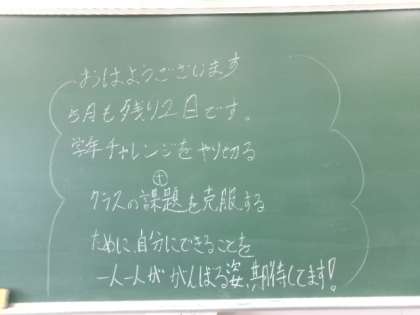 おはようございます
5月も残り2日です。
学年チャレンジをやり切る
クラスの課題を克服する
ために、自分にできることを
一人一人ががんばる姿、期待してます!